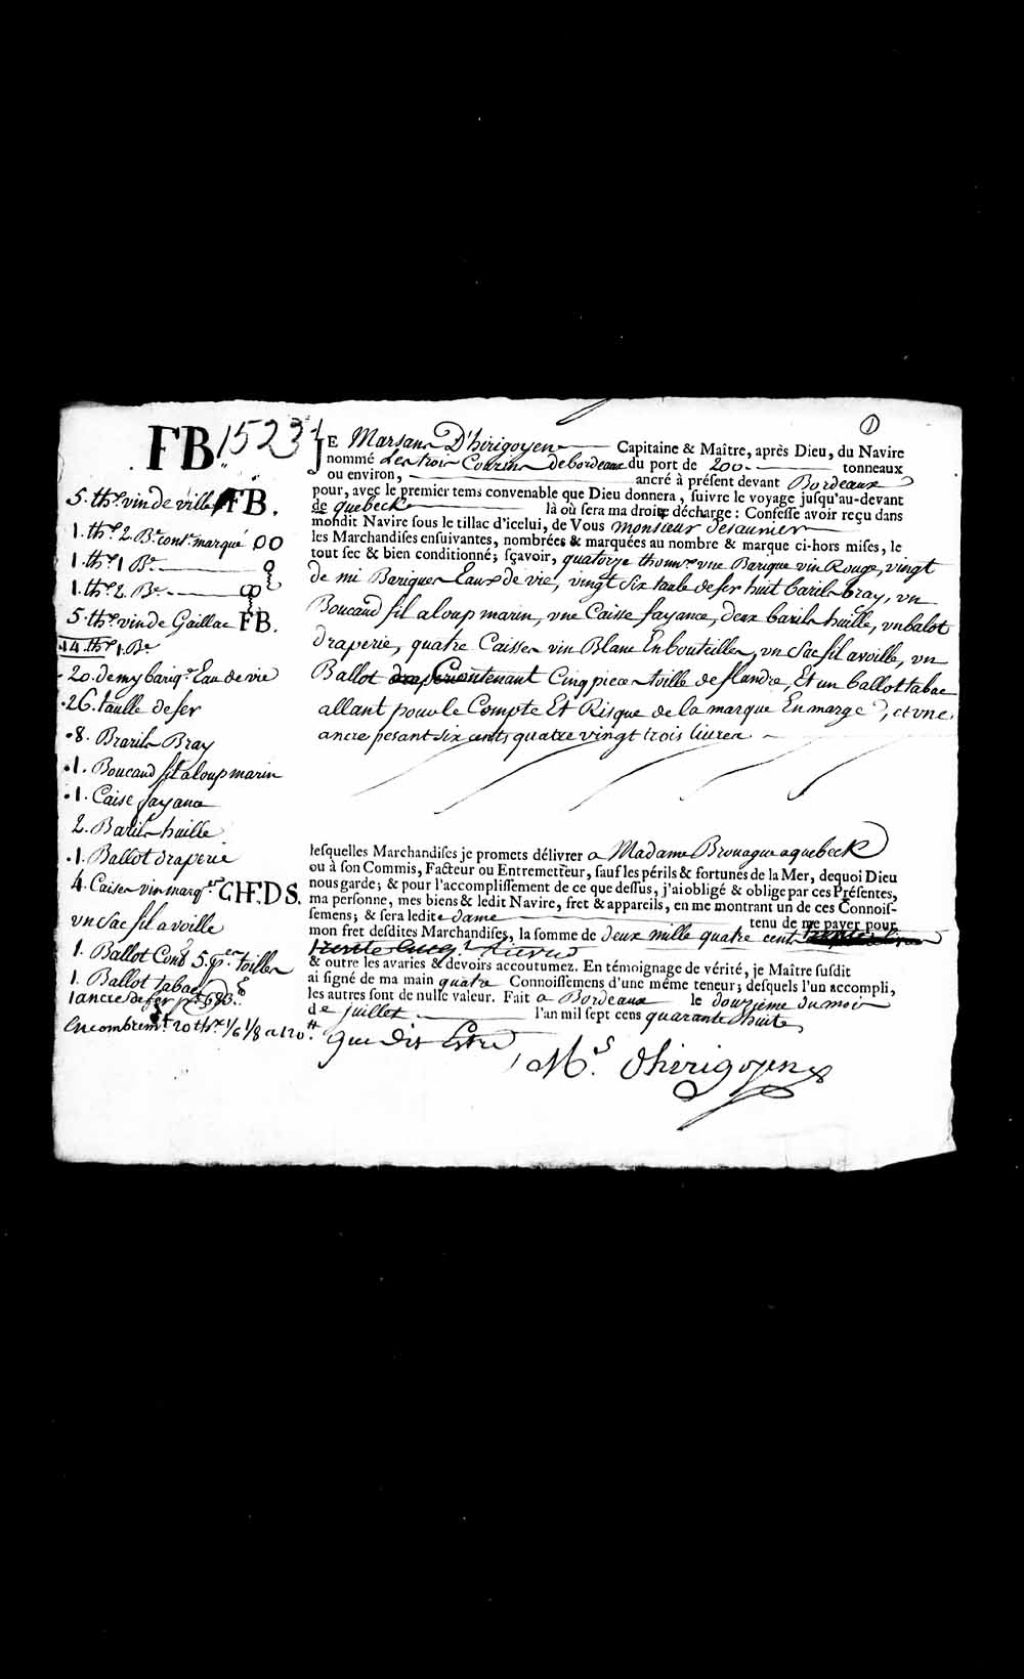 ①
FB. 1523
JE Marsans D'hirigoyen Capitaine & Maître, après Dieu, du Navire
nommé Les trois Cousins de bordeaux du port de 200 tonneaux
ou environ, ancré à présent devant Bordeaux
pour, avec le premier tems convenable que Dieu donnera, suivre le voyage jusqu'au-devant
de quebeck là où sera ma droite décharge : Confesse avoir reçu dans
mondit Navire sous le tillac d'icelui, de Vous monsieur desaunier
les Marchandises ensuivantes, nombrées & marquées au nombre & marque ci-hors mises, le
tout sec & bien conditionné; sçavoir, quatorze thonnx. vne Barique vin Rouge, vingt
de mi Bariques Eaux de vie, vingt six taule de fer huit barils bray, vn
Boucaud fil a loup marin, vne Caisse fayance, deux barils huille, vn balot
draperie, quatre Caisses vin Blanc En bouteilles, vn Sac fil a voille, vn
Ballot Contenant Cinq pieces toille de flandre, Et un ballot tabac
allant pour le Compte Et Risque de la marque En marge, et vne
ancre pesant six cents quatre vingt trois livres
5. thx. vin de ville FB.
1. thx. 2. Be. marqué OO
1. thx. 1 Be.
1. thx. 2. Be.
5. thx. vin de Gaillac FB.
14. thx. 1. Be
20. demy bariqs. Eau de vie
26. taulle de fer
8. Barils Bray
1. Boucaud fil a loup marin
1. Caise fayance
2. Barils huille
1. Ballot draperie
4. Caises vin marqées CHF.DS.
vn Sac fil a voille
1. Ballot Cont. 5. pces. toilles
1. Ballot tabac
1 ancre de fer pt. 683.
Encombremt. 20 thx. 1/6 1/8 a 120.tt
lesquelles Marchandises je promets délivrer a Madame Brouague a quebeck
ou à son Commis, Facteur ou Entremetteur, sauf les périls & fortunes de la Mer, dequoi Dieu
nous garde; & pour l'accomplissement de ce que dessus, j'ai obligé & oblige par ces Présentes,
ma personne, mes biens & ledit Navire, fret & appareils, en me montrant un de ces Connois-
semens; & sera ledite dame tenu de me payer pour
mon fret desdites Marchandises, la somme de deux mille quatre cents
trente Livres
& outre les avaries & devoirs accoutumez. En témoignage de vérité, je Maître susdit
ai signé de ma main quatre Connoissemens d'une même teneur; desquels l'un accompli,
les autres sont de nulle valeur. Fait a Bordeaux le douzieme du mois
de juillet l'an mil sept cens quarante huit
que dit Estre
Ms. Dhirigoyen